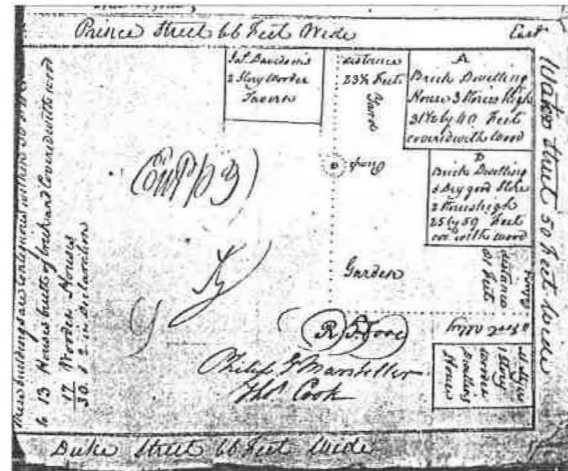 Prince Street 66 Feet Wide
East
Water Street 50 Feet Wide
Jos. Davidson's
2 Story Wooden
Tavern
distance
23½ Feet
Yard
A
Brick Dwelling
House 3 Stories high
31½ by 40 Feet
covered with wood
B
Brick Dwelling
& Dry good Store
2 Stories high
25 by 50 Feet
cov. with wood
Garden
distance
Feet
Alley
Story
Wooden
Dwelling
House
R. T. Hooe
Philip G Marsteller
Thos. Cook
Duke Street 66 Feet Wide
These buildings are Contiguous within 30
to 13 Houses built of brick and Covered with wood
17 Wooden Houses
30. & 2 in Declaration